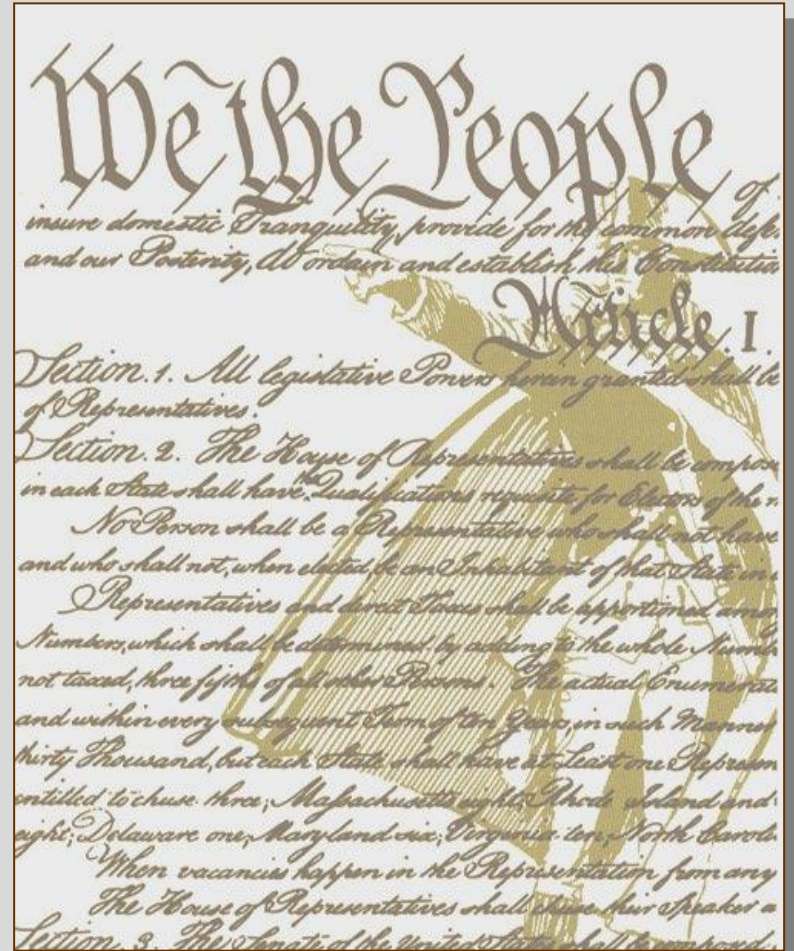 We the People of
insure domestic Tranquility, provide for the common defe
and our Posterity, do ordain and establish this Constitutio
Article I.
Section. 1. All legislative Powers herein granted shall be
of Representatives.
Section. 2. The House of Representatives shall be compos
in each State shall have the Qualifications requisite for Electors of the
No Person shall be a Representative who shall not have
and who shall not, when elected, be an Inhabitant of that State in
Representatives and direct Taxes shall be apportioned amo
Numbers, which shall be determined by adding to the whole Numb
not taxed, three fifths of all other Persons. The actual Enumerat
and within every subsequent Term of ten Years, in such Manner
thirty Thousand, but each State shall have at Least one Represen
entitled to chuse three, Massachusetts eight, Rhode Island and
eight, Delaware one, Maryland six, Virginia ten, North Caroli
When vacancies happen in the Representation from any
The House of Representatives shall chuse their Speaker a
Section. 3. The Senate of the United States shall be composed